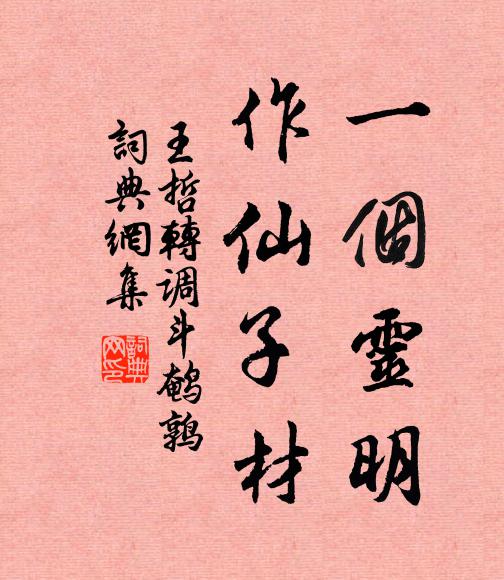 一個靈明
作仙子材
王哲轉调斗鹌鹑
詞典網集
詞典網印